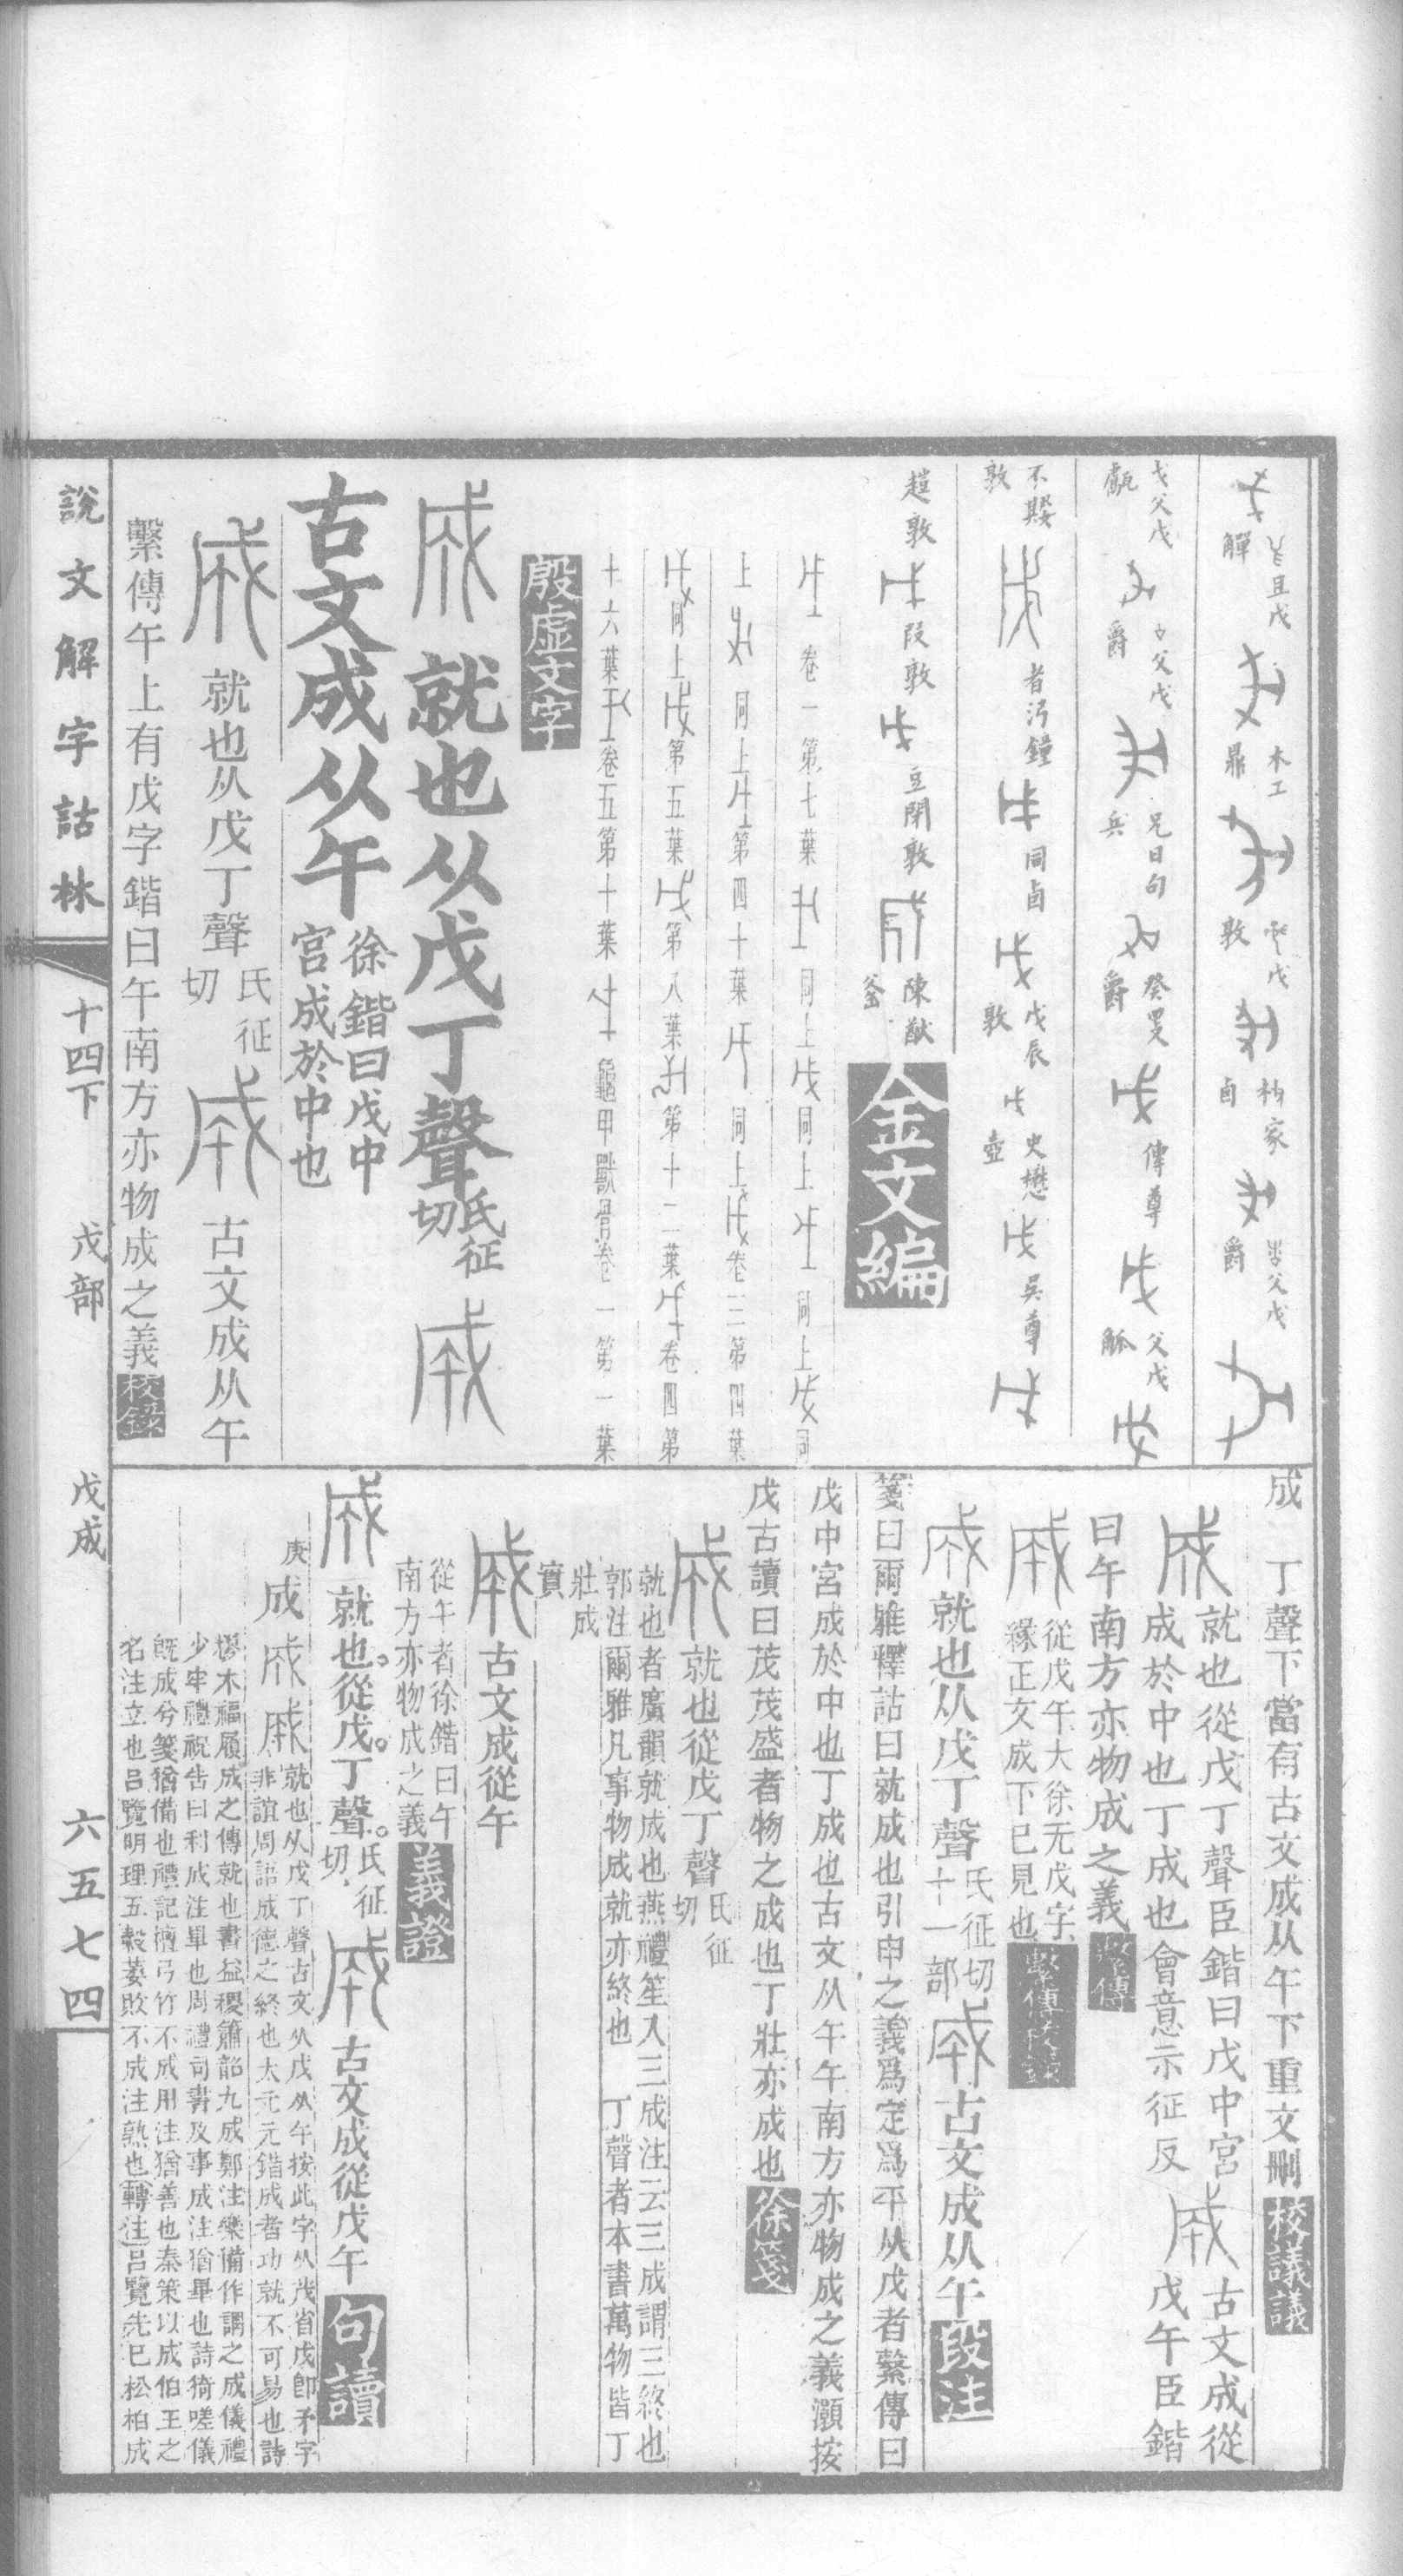 且戊
觶
木工
鼎
戊
敦
家
卣
父戊
爵
父戊
甗
父戊
爵
兄日句
兵
癸旻
爵
傳尊
父戊
觚
不𡢁
敦
者汈鐘
同卣
戊辰
敦
史懋
壺
吳尊
趞敦
段敦
豆閉敦
陳猷
釜
金文編
卷一第七葉
同上
同上
同上
同
上
同上
第四十葉
同上
卷三第四葉
同上
第五葉
第八葉
第十二葉
卷四第
十六葉
卷五第十葉
龜甲獸骨卷一第一葉
殷虛文字
就也从戊丁聲氏征切
古文成从午徐鍇曰戊中宮成於中也
就也从戊丁聲氏征切
古文成从午
繫傳午上有戊字鍇曰午南方亦物成之義校錄
成 丁聲下當有古文成从午下重文刪校議議
就也從戊丁聲臣鍇曰戊中宮
成於中也丁成也會意示征反
古文成從
戊午臣鍇
曰午南方亦物成之義繫傳
從戊午大徐无戊字
緣正文成下已見也繫傳校錄
就也从戊丁聲氏征切十一部
古文成从午段注
箋曰爾雅釋詁曰就成也引申之義爲定爲平从戊者繫傳曰
戊中宮成於中也丁成也古文从午午南方亦物成之義灝按
戊古讀曰茂茂盛者物之成也丁壯亦成也徐箋
就也從戊丁聲氏征切
就也者廣韻就成也燕禮笙入三成注云三成謂三終也
郭注爾雅凡事物成就亦終也 丁聲者本書萬物皆丁
壯成
實
古文成從午
從午者徐鍇曰午
南方亦物成之義義證
就也。從戊。丁聲。氏征切
古文成從戊午句讀
庚
成
就也从戊丁聲古文从戊从午按此字从茂省戊卽矛字
非誼周語成德之終也太元元錯成者功就不可易也詩
樛木福履成之傳就也書益稷簫韶九成鄭注樂備作謂之成儀禮
少牢禮祝告曰利成注畢也周禮司書及事成注猶畢也詩猗嗟儀
旣成兮箋猶備也禮記檀弓竹不成用注猶善也秦策以成伯王之
名注立也呂覽明理五穀萎敗不成注熟也轉注呂覽先己松柏成
說文解字詁林
十四下
戊部
戊成
六五七四